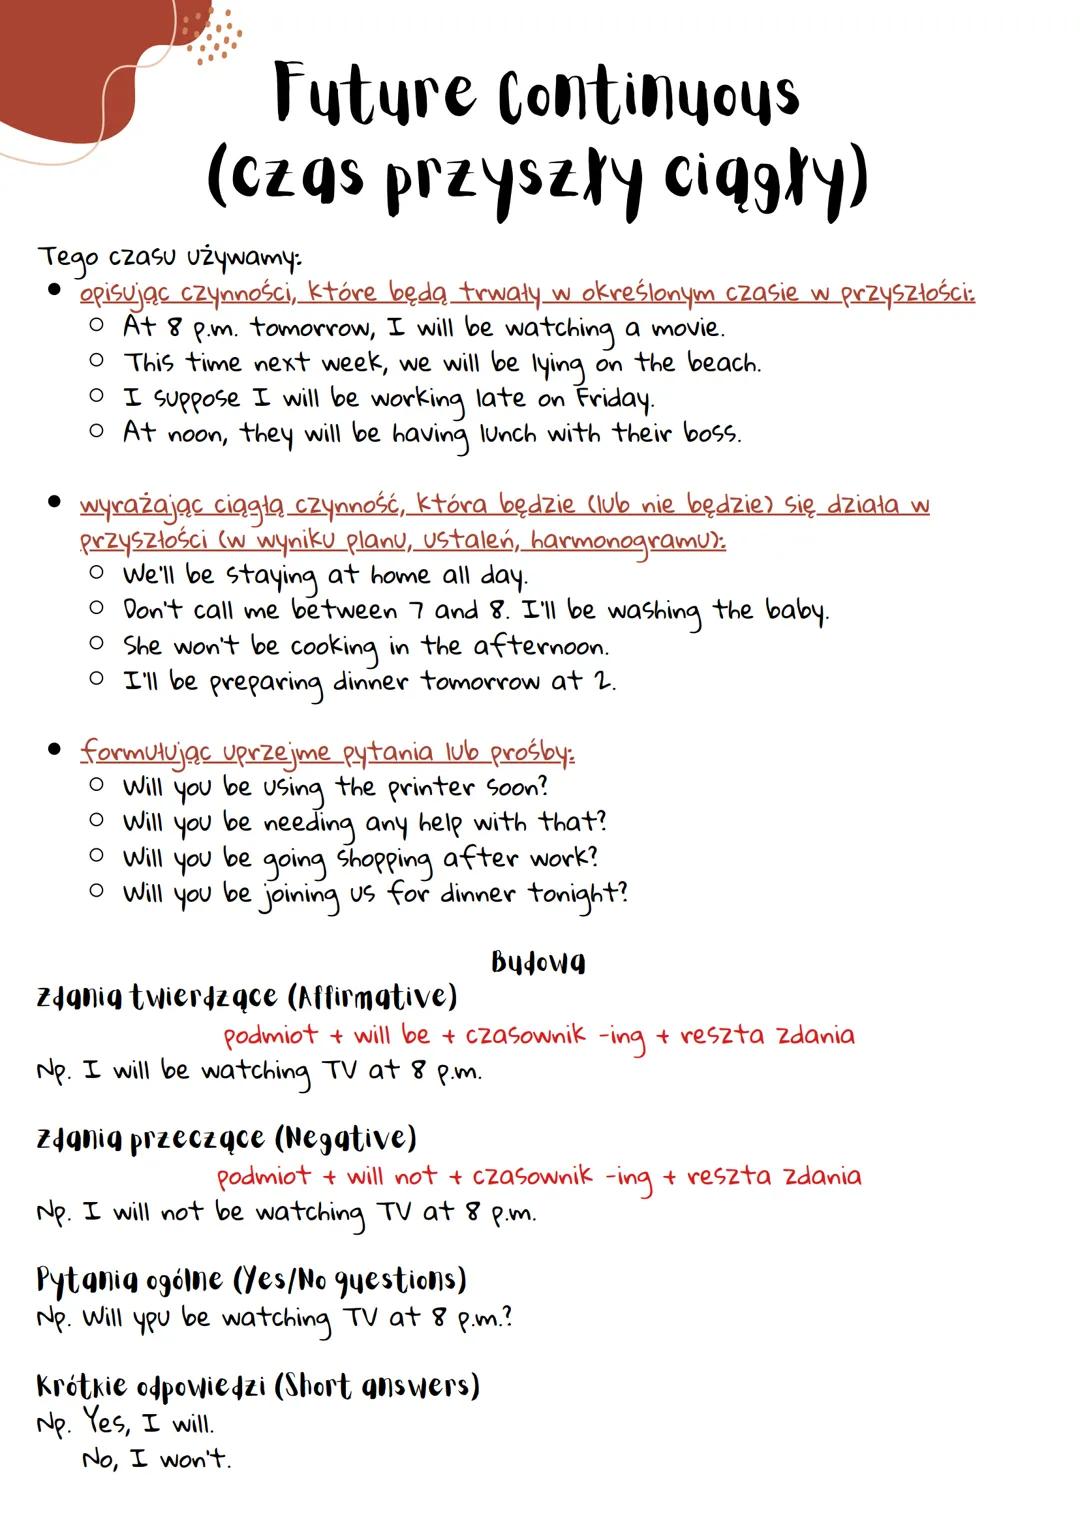 Future Continuous
(czas przyszły ciągły)
Tego czasu używamy:
• opisując czynności, które będą trwały w określonym czasie w przyszłości:
○ At 8 p.m. tomorrow, I will be watching a movie.
○ This time next week, we will be lying on the beach.
○ I suppose I will be working late on Friday.
○ At noon, they will be having lunch with their boss.
• wyrażając ciągłą czynność, która będzie (lub nie będzie) się działa w
przyszłości (w wyniku planu, ustaleń, harmonogramu):
○ We'll be staying at home all day.
○ Don't call me between 7 and 8. I'll be washing the baby.
○ She won't be cooking in the afternoon.
○ I'll be preparing dinner tomorrow at 2.
• formułując uprzejme pytania lub prośby:
○ Will you be using the printer soon?
○ Will you be needing any help with that?
○ Will you be going shopping after work?
○ Will you be joining us for dinner tonight?
Budowa
Zdania twierdzące (Affirmative)
podmiot + will be + czasownik -ing + reszta zdania
Np. I will be watching TV at 8 p.m.
Zdania przeczące (Negative)
podmiot + will not + czasownik -ing + reszta zdania
Np. I will not be watching TV at 8 p.m.
Pytania ogólne (Yes/No questions)
Np. Will ypu be watching TV at 8 p.m.?
Krótkie odpowiedzi (Short answers)
Np. Yes, I will.
No, I won't.